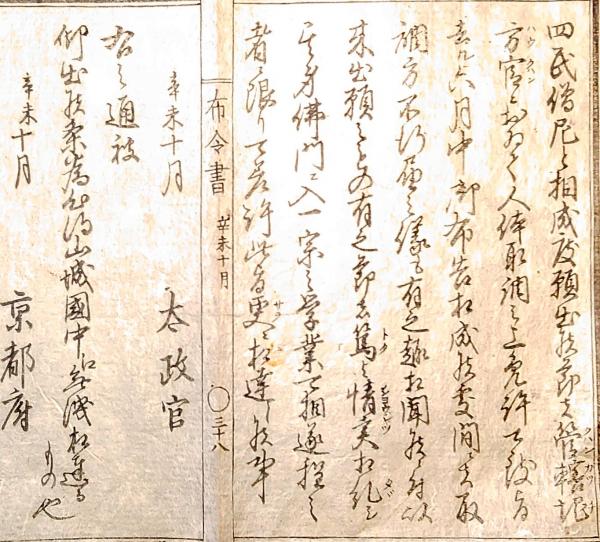 四民僧尼ニ相成度願出候節者管轄地
方官ニおゐて人体取調之上免許可致旨
去ル六月中御布告相成候処間ニ者取
調方不行届之儀も有之趣相聞候ニ付以
来出願之もの有之節者篤ト情実相糺シ
其身佛門ニ入一宗之学業可相遂程之
者ニ限リ可差許此旨更ニ相達シ候事
辛未十月
太政官
布令書
辛未十月
〇三十八
右之通被
仰出候条為心得山城國中無洩相達る
もの也
辛未十月
京都府